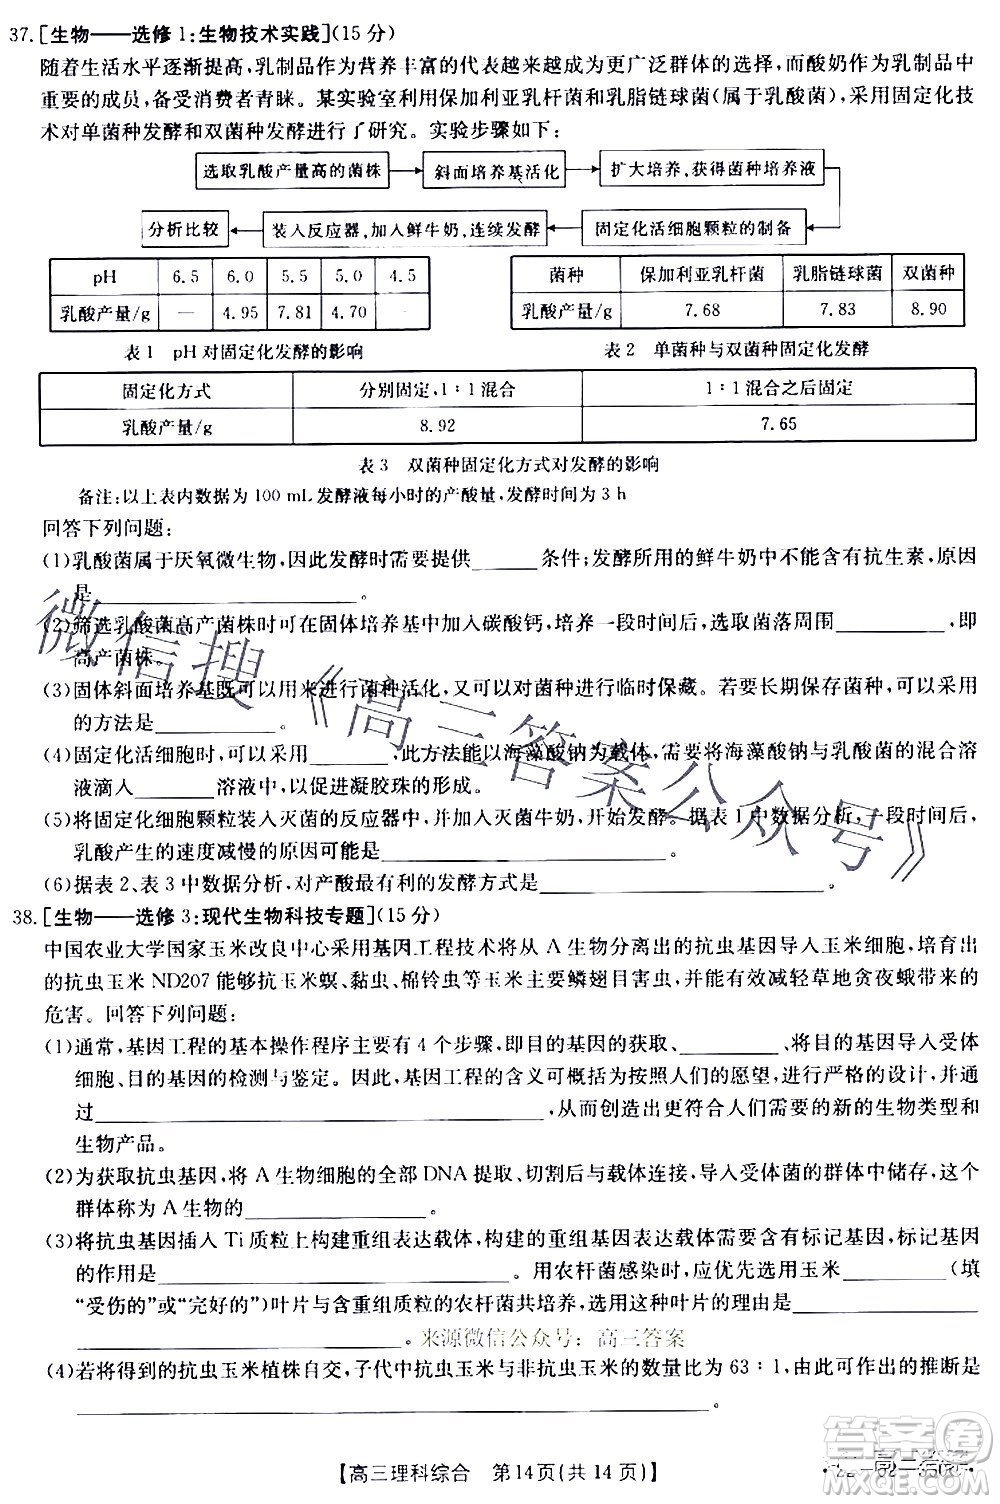 37.[生物——选修1:生物技术实践](15分)
随着生活水平逐渐提高,乳制品作为营养丰富的代表越来越成为更广泛群体的选择,而酸奶作为乳制品中
重要的成员,备受消费者青睐。某实验室利用保加利亚乳杆菌和乳脂链球菌(属于乳酸菌),采用固定化技
术对单菌种发酵和双菌种发酵进行了研究。实验步骤如下:
选取乳酸产量高的菌株 斜面培养基活化 扩大培养,获得菌种培养液
分析比较 装入反应器,加入鲜牛奶,连续发酵 固定化活细胞颗粒的制备
pH 6.5 6.0 5.5 5.0 4.5
乳酸产量/g — 4.95 7.81 4.70 —
表1 pH对固定化发酵的影响
菌种 保加利亚乳杆菌 乳脂链球菌 双菌种
乳酸产量/g 7.68 7.83 8.90
表2 单菌种与双菌种固定化发酵
固定化方式 分别固定,1:1混合 1:1混合之后固定
乳酸产量/g 8.92 7.65
表3 双菌种固定化方式对发酵的影响
备注:以上表内数据为100 mL发酵液每小时的产酸量,发酵时间为3 h
回答下列问题:
(1)乳酸菌属于厌氧微生物,因此发酵时需要提供______条件;发酵所用的鲜牛奶中不能含有抗生素,原因
是______。
(2)筛选乳酸菌高产菌株时可在固体培养基中加入碳酸钙,培养一段时间后,选取菌落周围______,即
高产菌株。
(3)固体斜面培养基既可以用来进行菌种活化,又可以对菌种进行临时保藏。若要长期保存菌种,可采用
的方法是______。
(4)固定化活细胞时,可以采用______,此方法能以海藻酸钠为载体,需要将海藻酸钠与乳酸菌的混合溶
液滴入______溶液中,以促进凝胶珠的形成。
(5)将固定化细胞颗粒装入灭菌的反应器中,并加入灭菌牛奶,开始发酵。据表1中数据分析,一段时间后,
乳酸产生的速度减慢的原因可能是______。
(6)据表2、表3中数据分析,对产酸最有利的发酵方式是______。
38.[生物——选修3:现代生物科技专题](15分)
中国农业大学国家玉米改良中心采用基因工程技术将从A生物分离出的抗虫基因导入玉米细胞,培育出
的抗虫玉米ND207能够抵抗玉米螟、黏虫、棉铃虫等玉米的鳞翅目害虫,能有效减轻草地贪夜蛾带来的
危害。回答下列问题:
(1)通常,基因工程的基本操作程序主要有4个步骤,即目的基因的获取、______、将目的基因导入受体
细胞、目的基因的检测与鉴定。因此,基因工程的含义可概括为按照人们的愿望,进行严格的设计,并通
过______,从而创造出更符合人们需要的新的生物类型和
生物产品。
(2)为获取抗虫基因,将A生物细胞的全部DNA提取、切割后与载体连接,导入受体菌的群体中储存,这个
群体称为A生物的______。
(3)将抗虫基因插入Ti质粒上构建重组表达载体,构建的重组基因表达载体需要含有标记基因,标记基因
的作用是______。用农杆菌感染时,应优先选用玉米______(填
“受伤的”或“完好的”)叶片与含重组质粒的农杆菌共培养,选用这种叶片的理由是______
______。 来源微信公众号:高三答案
(4)若将得到的抗虫玉米植株自交,子代中抗虫玉米与非抗虫玉米的数量比为63:1,由此可作出的推断是
______。
【高三理科综合 第14页(共14页)】
微信搜《高三答案公众号》
答案圈